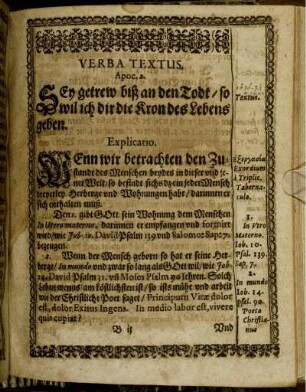 VERBA TEXTUS.
Apoc. 2.
SEy getrew biß an den Todt / so
wil ich dir die Kron des Lebens
geben.
Textus.
Explicatio.
WEnn wir betrachten den Zu-
standt des Menschen beydes in dieser vnd je-
ner Welt / so befindt sichs
Herberge vnd Wohnungen habe / darinnen er
sich enthalten muß.
Exordium
à Triplic.
Taberna-
culo.
Denn 1. gibt GOtt sein Wohnung dem Menschen
in Utero materno, darinnen er empfangen vnd formiret
wird / wie Job. 10. David Psalm 139 vnd Salomo: Sap: 7.
bezeugen.
1.
In Utero
materno.
Iob. 10.
Psal. 139.
Sap. 7.
2. Wenn der Mensch geborn so hat er seine Her-
berge / in mundo vnd zwar so lang als GOtt wil / wie Job.
14. David Psalm 31. vnd Moses Psalm 90 lehren. Solch
Leben wenns am köstlichsten ist / so ists mühe vnd arbeit
wie der Christliche Poet saget / Principium Vitæ dolor
est, dolor Exitus Ingens. In medio labor est, vivere
quis cupiat?
2.
In mundo
Iob. 14.
psal. 90.
Poeta
Christia-
nus
B ij
Vnd